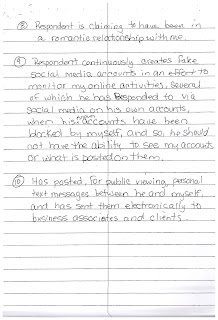 ⑧ Respondent is claiming to have been in
a romantic relationship with me.
⑨ Respondent continuously creates fake
social media accounts in an effort to
monitor my online activities, several
of which he has responded to via
social media on his own accounts,
when his known accounts have been
blocked by myself, and so, he should
not have the ability to see my accounts
or what is posted on them.
⑩ Has posted, for public viewing, personal
text messages between he and myself,
and has sent them electronically to
business associates and clients.